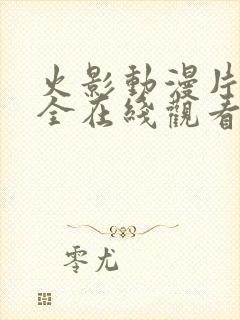 火影動漫片
全在綫觀看
零尤